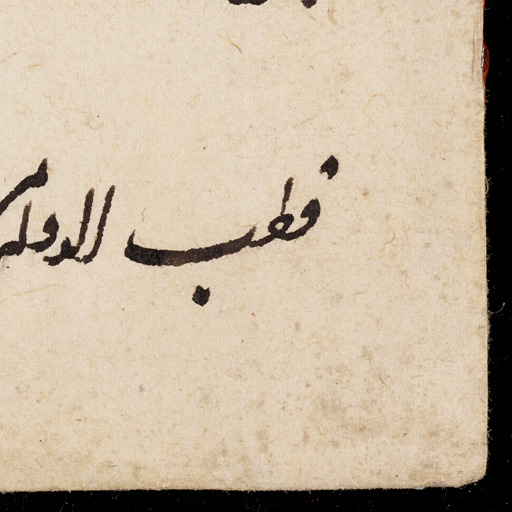 قطب الدوله